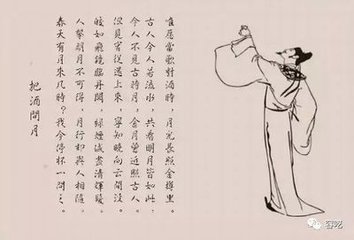 把酒問月
青天有月來幾時？我今停杯一問之。
人攀明月不可得，月行卻與人相隨。
皎如飛鏡臨丹闕，綠煙滅盡清輝發。
但見宵從海上來，寧知曉向雲間沒。
今人不見古時月，今月曾經照古人。
古人今人若流水，共看明月皆如此。
唯愿當歌對酒時，月光長照金樽里。